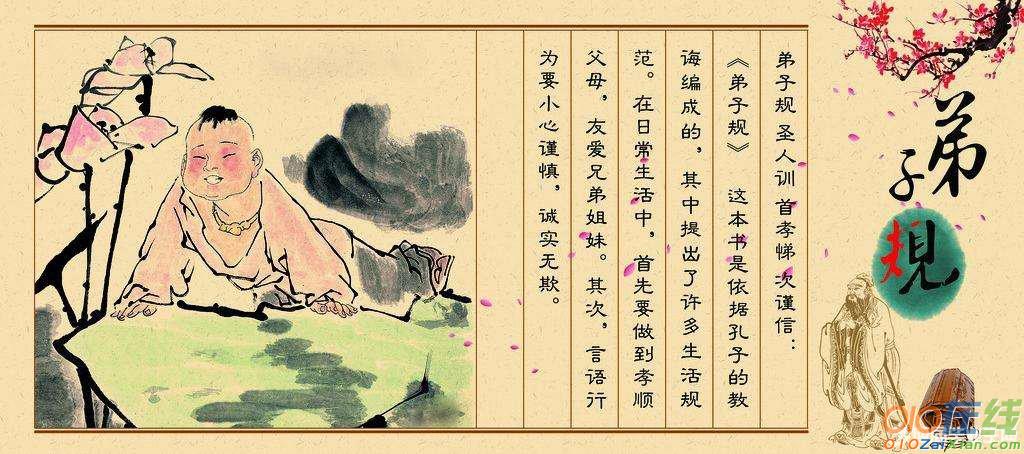 弟子规
弟子规 圣人训 首孝悌 次谨信：
《弟子规》 这本书是依据孔子的教
诲编成的，其中提出了许多生活规
范。在日常生活中，首先要做到孝顺
父母，友爱兄弟姐妹。其次，言语行
为要小心谨慎，诚实无欺。
010在线
010ZaiXian.com